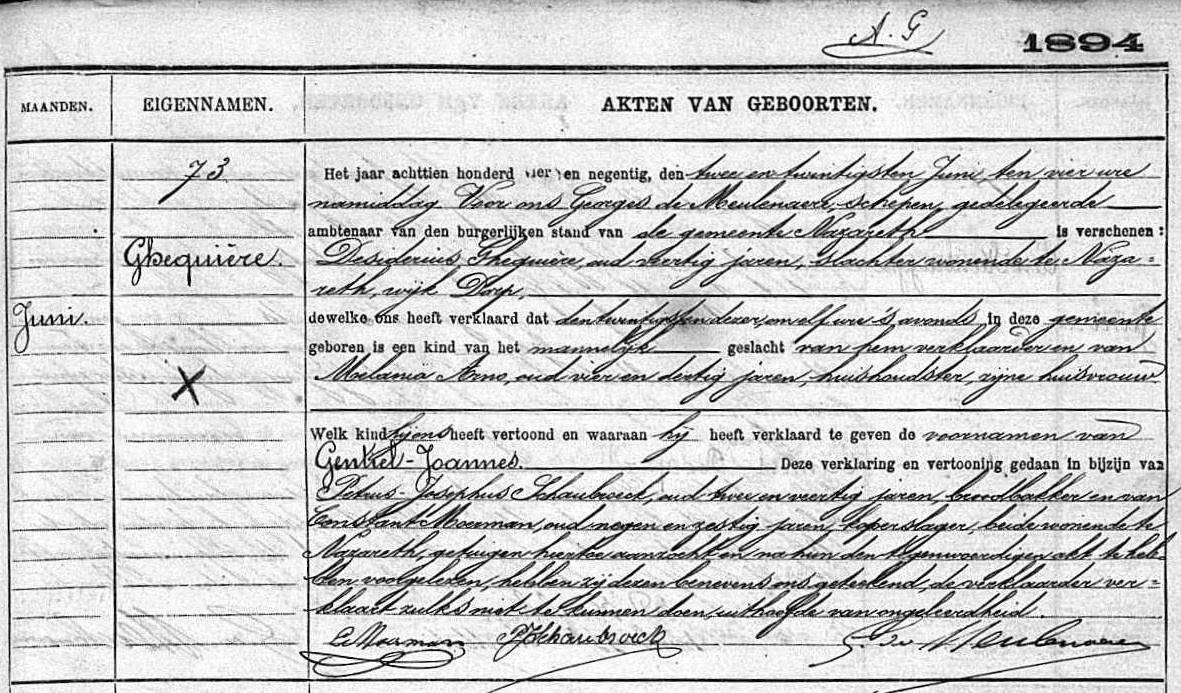 A. G
1894
MAANDEN. EIGENNAMEN. AKTEN VAN GEBOORTEN.
73
Ghequière.
Juni.
X
Het jaar achttien honderd vier en negentig, den twee en twintigsten Juni ten vier ure
namiddag Voor ons Georges de Meulenaere schepen, gedelegeerde
ambtenaar van den burgerlijken stand van de gemeente Nazareth is verschenen:
Desiderius Ghequière, oud veertig jaren, slachter wonende te Naza-
reth, wijk Dorp,
dewelke ons heeft verklaard dat den twintigsten dezer om elf ure 's avonds in deze gemeente
geboren is een kind van het mannelijk geslacht van hem verklaarder en van
Melania Arno, oud vier en dertig jaren, huishoudster, zijne huisvrouw
Welk kind hij ons heeft vertoond en waaraan hij heeft verklaard te geven de voornamen van
Joannes. Deze verklaring en vertooning gedaan in bijzijn van
Petrus-Josephus Schaubroeck, oud twee en veertig jaren, broodbakker en van
Constant Moerman, oud negen en zestig jaren, koperslager, beide wonende te
Nazareth, getuigen hiertoe aanzocht en na hun den tegenwoordigen akt te heb-
ben voorgelezen, hebben zij dezen benevens ons geteekend, de verklaarder ver-
klaart zulks niet te kunnen doen, uithoofde van ongeleerdheid.
C Moerman PJSchaubroeck G. de Meulenaere